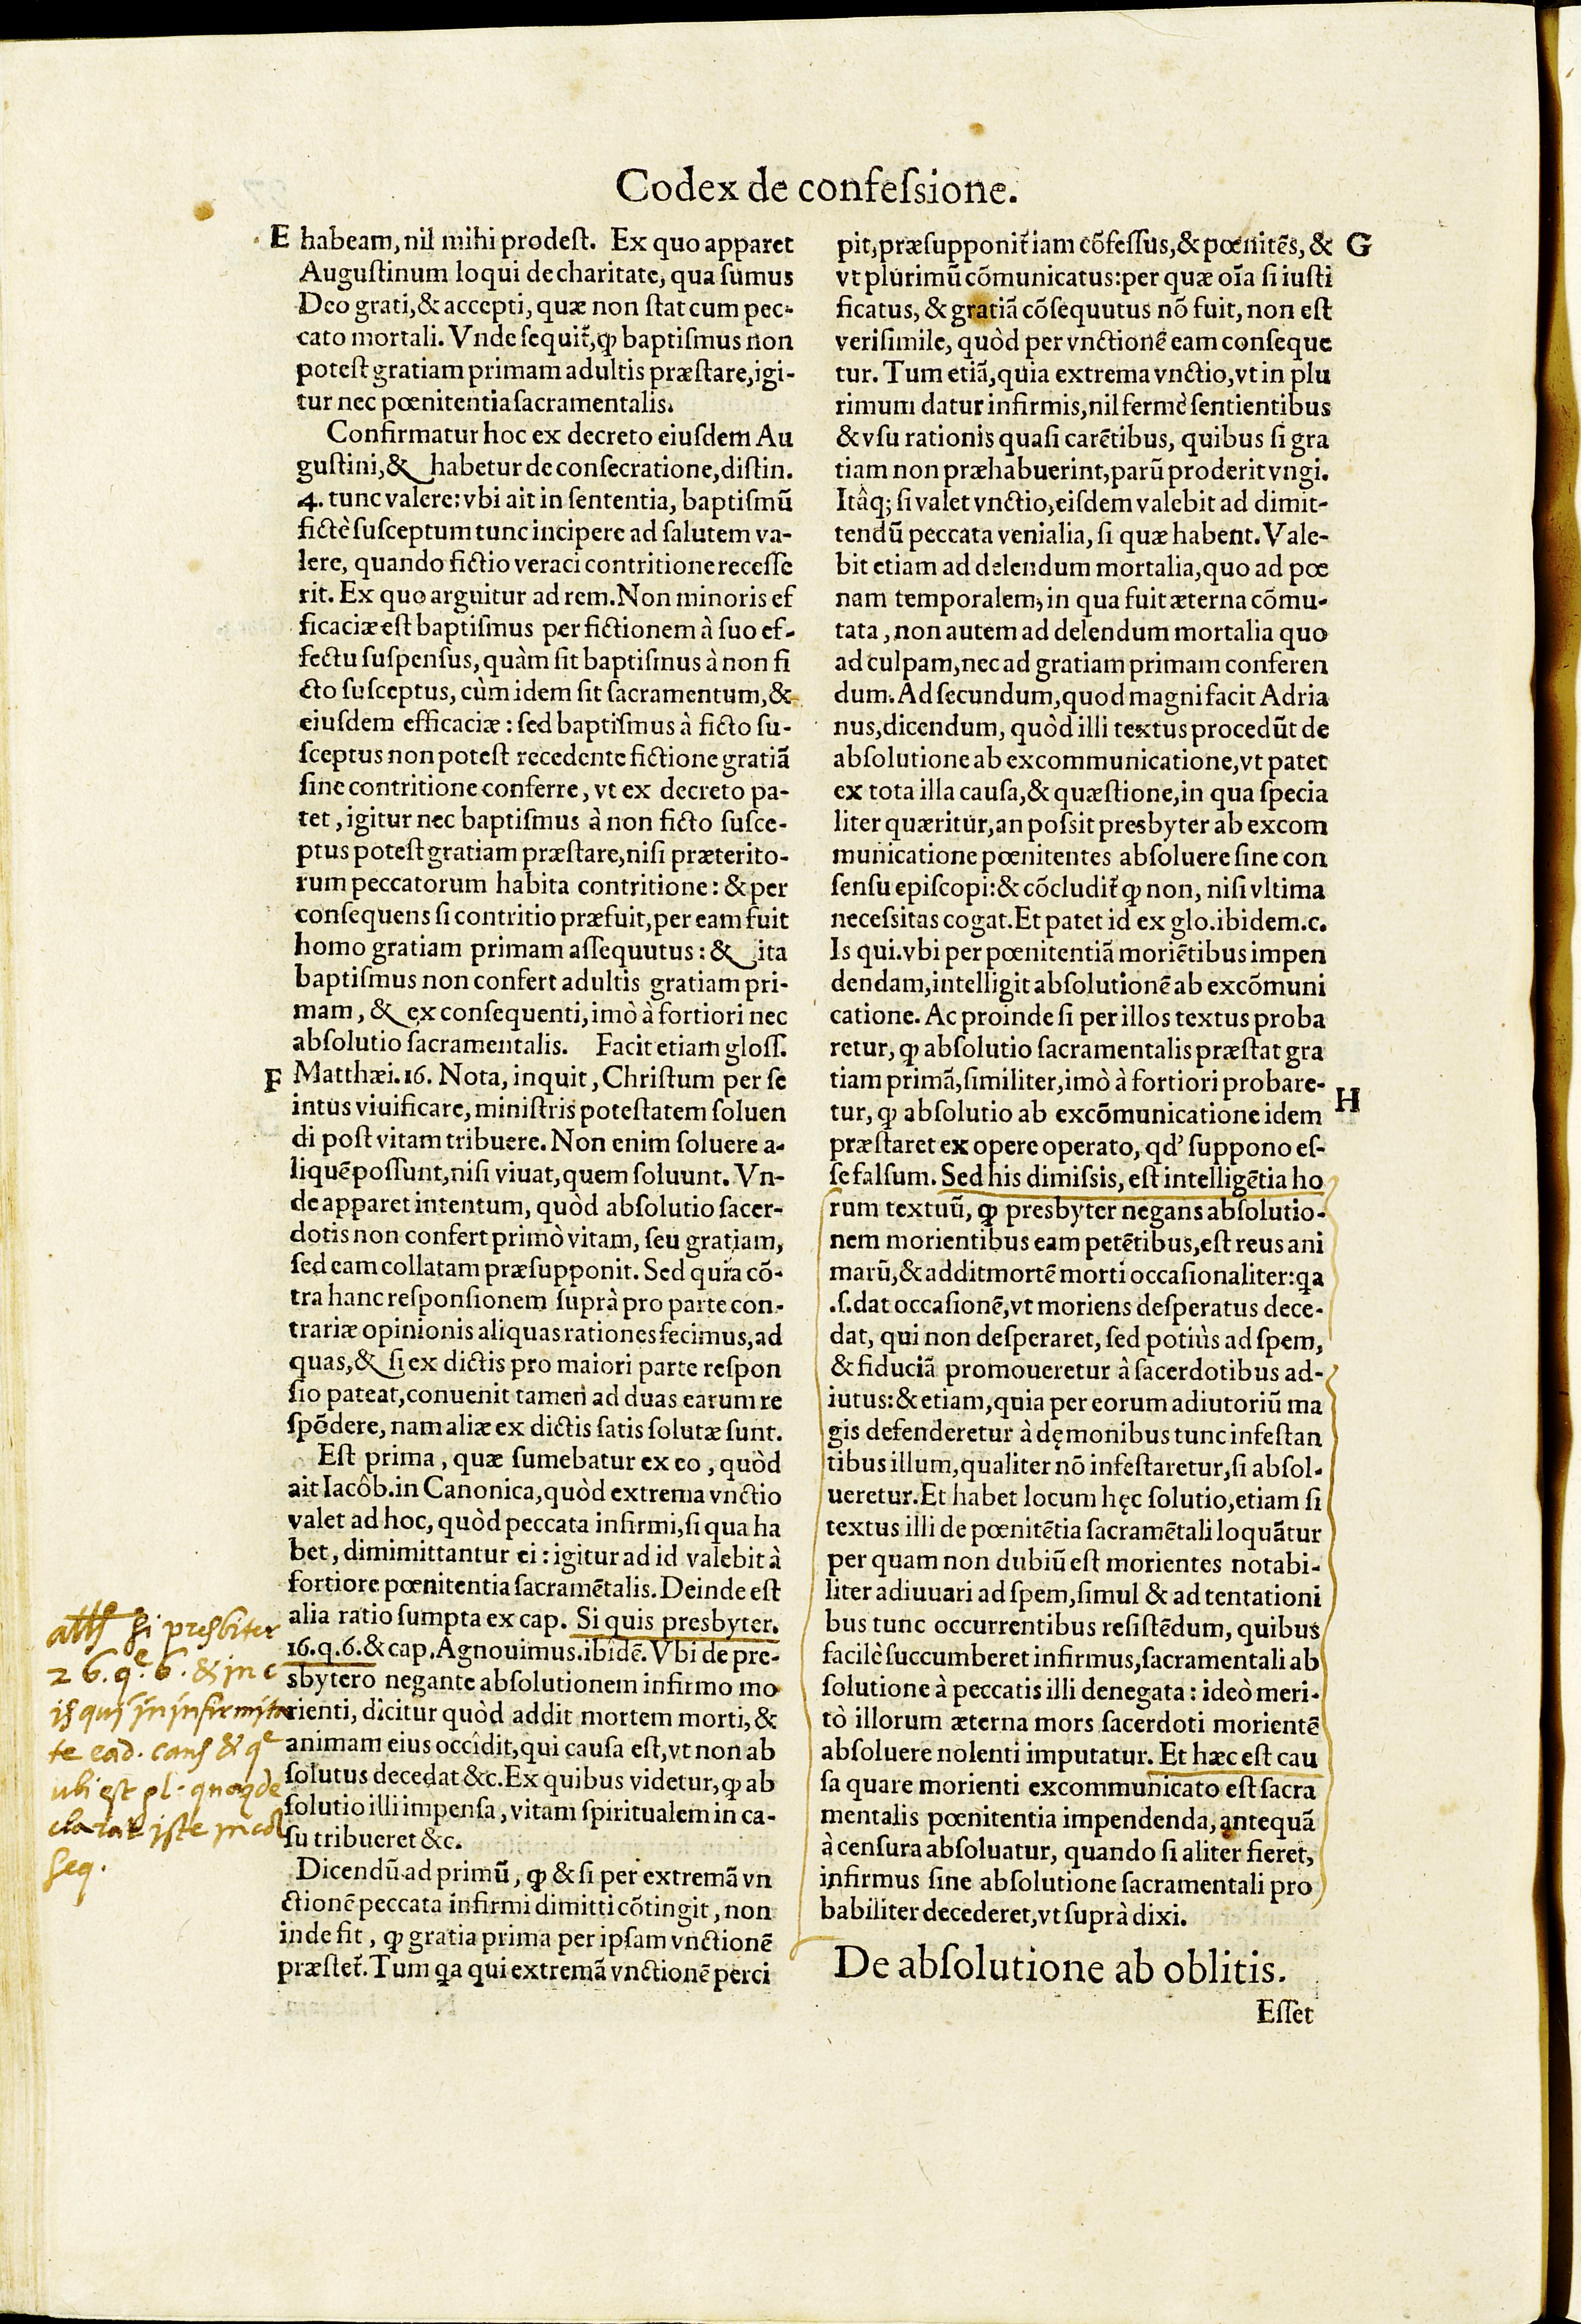 Codex de confeſsione.
E habeam, nil mihi prodeſt. Ex quo apparet
Auguſtinum loqui de charitate, qua ſumus
Deo grati, & accepti, quæ non ſtat cum pec-
cato mortali. Vnde ſequit̃, ꝙ baptiſmus non
poteſt gratiam primam adultis præſtare, igi-
tur nec pœnitentia ſacramentalis.
Confirmatur hoc ex decreto eiuſdem Au
guſtini, & habetur de conſecratione, diſtin.
4. tunc valere: vbi ait in ſententia, baptiſmũ
fictè ſuſceptum tunc incipere ad ſalutem va-
lere, quando fictio veraci contritione receſſe
rit. Ex quo arguitur ad rem. Non minoris ef
ficaciæ eſt baptiſmus per fictionem à ſuo ef-
fectu ſuſpenſus, quàm ſit baptiſmus à non fi
cto ſuſceptus, cùm idem ſit ſacramentum, &
eiuſdem efficaciæ: ſed baptiſmus à ficto ſu-
ſceptus non poteſt recedente fictione gratiã
ſine contritione conferre, vt ex decreto pa-
tet, igitur nec baptiſmus à non ficto ſuſce-
ptus poteſt gratiam præſtare, niſi præterito-
rum peccatorum habita contritione: & per
conſequens ſi contritio præfuit, per eam fuit
homo gratiam primam aſſequutus: & ita
baptiſmus non confert adultis gratiam pri-
mam, & ex conſequenti, imò à fortiori nec
abſolutio ſacramentalis. Facit etiam gloſſ.
F Matthæi. 16. Nota, inquit, Chriſtum per ſe
intus viuificare, miniſtris poteſtatem ſoluen
di poſt vitam tribuere. Non enim ſoluere a-
liquẽ poſſunt, niſi viuat, quem ſoluunt. Vn-
de apparet intentum, quòd abſolutio ſacer-
dotis non confert primò vitam, ſeu gratiam,
ſed eam collatam præſupponit. Sed quia cõ-
tra hanc reſponſionem ſuprà pro parte con-
trariæ opinionis aliquas rationes fecimus, ad
quas, & ſi ex dictis pro maiori parte reſpon
ſio pateat, conuenit tamen ad duas earum re
ſpõdere, nam aliæ ex dictis ſatis ſolutæ ſunt.
Eſt prima, quæ ſumebatur ex eo, quòd
ait Iacôb. in Canonica, quòd extrema vnctio
valet ad hoc, quòd peccata infirmi, ſi qua ha
bet, dimimittantur ei: igitur ad id valebit à
fortiore pœnitentia ſacramẽtalis. Deinde eſt
alia ratio ſumpta ex cap. Si quis presbyter.
16. q. 6. & cap. Agnouimus. ibidẽ. Vbi de pre-
sbytero negante abſolutionem infirmo mo
rienti, dicitur quòd addit mortem morti, &
animam eius occîdit, qui cauſa eſt, vt non ab
ſolutus decedat &c. Ex quibus videtur, ꝙ ab
ſolutio illi impenſa, vitam ſpiritualem in ca-
ſu tribueret &c.
Dicendũ ad primũ, ꝙ & ſi per extremã vn
ctionẽ peccata infirmi dimitti cõtingit, non
inde fit, ꝙ gratia prima per ipſam vnctionẽ
præſtet̃. Tum ꝗa qui extremã vnctionẽ perci
ſi presbiter
26. qe. 6. & in c
is qui in infirmita
te ead. cauſ & qe
ubi est
clarat iste in col
ſeq.
pit, præſupponit̃ iam cõfeſſus, & pœnitẽs, & G
vt plurimũ cõmunicatus: per quæ oĩa ſi iuſti
ficatus, & gratiã cõſequutus nõ fuit, non eſt
veriſimile, quòd per vnctionẽ eam conſeque
tur. Tum etiã, quia extrema vnctio, vt in plu
rimum datur infirmis, nil fermè ſentientibus
& vſu rationis quaſi carẽtibus, quibus ſi gra
tiam non præhabuerint, parũ proderit vngi.
Itâq; ſi valet vnctio, eiſdem valebit ad dimit-
tendũ peccata venialia, ſi quæ habent. Vale-
bit etiam ad delendum mortalia, quo ad pœ
nam temporalem, in qua fuit æterna cõmu-
tata, non autem ad delendum mortalia quo
ad culpam, nec ad gratiam primam conferen
dum. Ad ſecundum, quod magni facit Adria
nus, dicendum, quòd illi textus procedũt de
abſolutione ab excommunicatione, vt patet
ex tota illa cauſa, & quæſtione, in qua ſpecia
liter quæritur, an poſsit presbyter ab excom
municatione pœnitentes abſoluere ſine con
ſenſu epiſcopi: & cõcludit̃ ꝙ non, niſi vltima
neceſsitas cogat. Et patet id ex glo. ibidem. c.
Is qui. vbi per pœnitentiã moriẽtibus impen
dendam, intelligit abſolutionẽ ab excõmuni
catione. Ac proinde ſi per illos textus proba
retur, ꝙ abſolutio ſacramentalis præſtat gra
tiam primã, ſimiliter, imò à fortiori probare-
tur, ꝙ abſolutio ab excõmunicatione idem H
præſtaret ex opere operato, qd' ſuppono eſ-
ſe falſum. Sed his dimiſsis, eſt intelligẽtia ho
rum textuũ, ꝙ presbyter negans abſolutio-
nem morientibus eam petẽtibus, eſt reus ani
marũ, & addit mortẽ morti occaſionaliter: ꝗa
.ſ. dat occaſionẽ, vt moriens deſperatus dece-
dat, qui non deſperaret, ſed potiùs ad ſpem,
& fiduciã promoueretur à ſacerdotibus ad-
iutus: & etiam, quia per eorum adiutoriũ ma
gis defenderetur à dęmonibus tunc infeſtan
tibus illum, qualiter nõ infeſtaretur, ſi abſol-
ueretur. Et habet locum hęc ſolutio, etiam ſi
textus illi de pœnitẽtia ſacramẽtali loquãtur
per quam non dubiũ eſt morientes notabi-
liter adiuuari ad ſpem, ſimul & ad tentationi
bus tunc occurrentibus reſiſtẽdum, quibus
facilè ſuccumberet infirmus, ſacramentali ab
ſolutione à peccatis illi denegata: ideò meri-
tò illorum æterna mors ſacerdoti morientẽ
abſoluere nolenti imputatur. Et hæc eſt cau
ſa quare morienti excommunicato eſt ſacra
mentalis pœnitentia impendenda, antequã
à cenſura abſoluatur, quando ſi aliter fieret,
infirmus ſine abſolutione ſacramentali pro
babiliter decederet, vt ſuprà dixi.
De abſolutione ab oblitis.
Eſſet